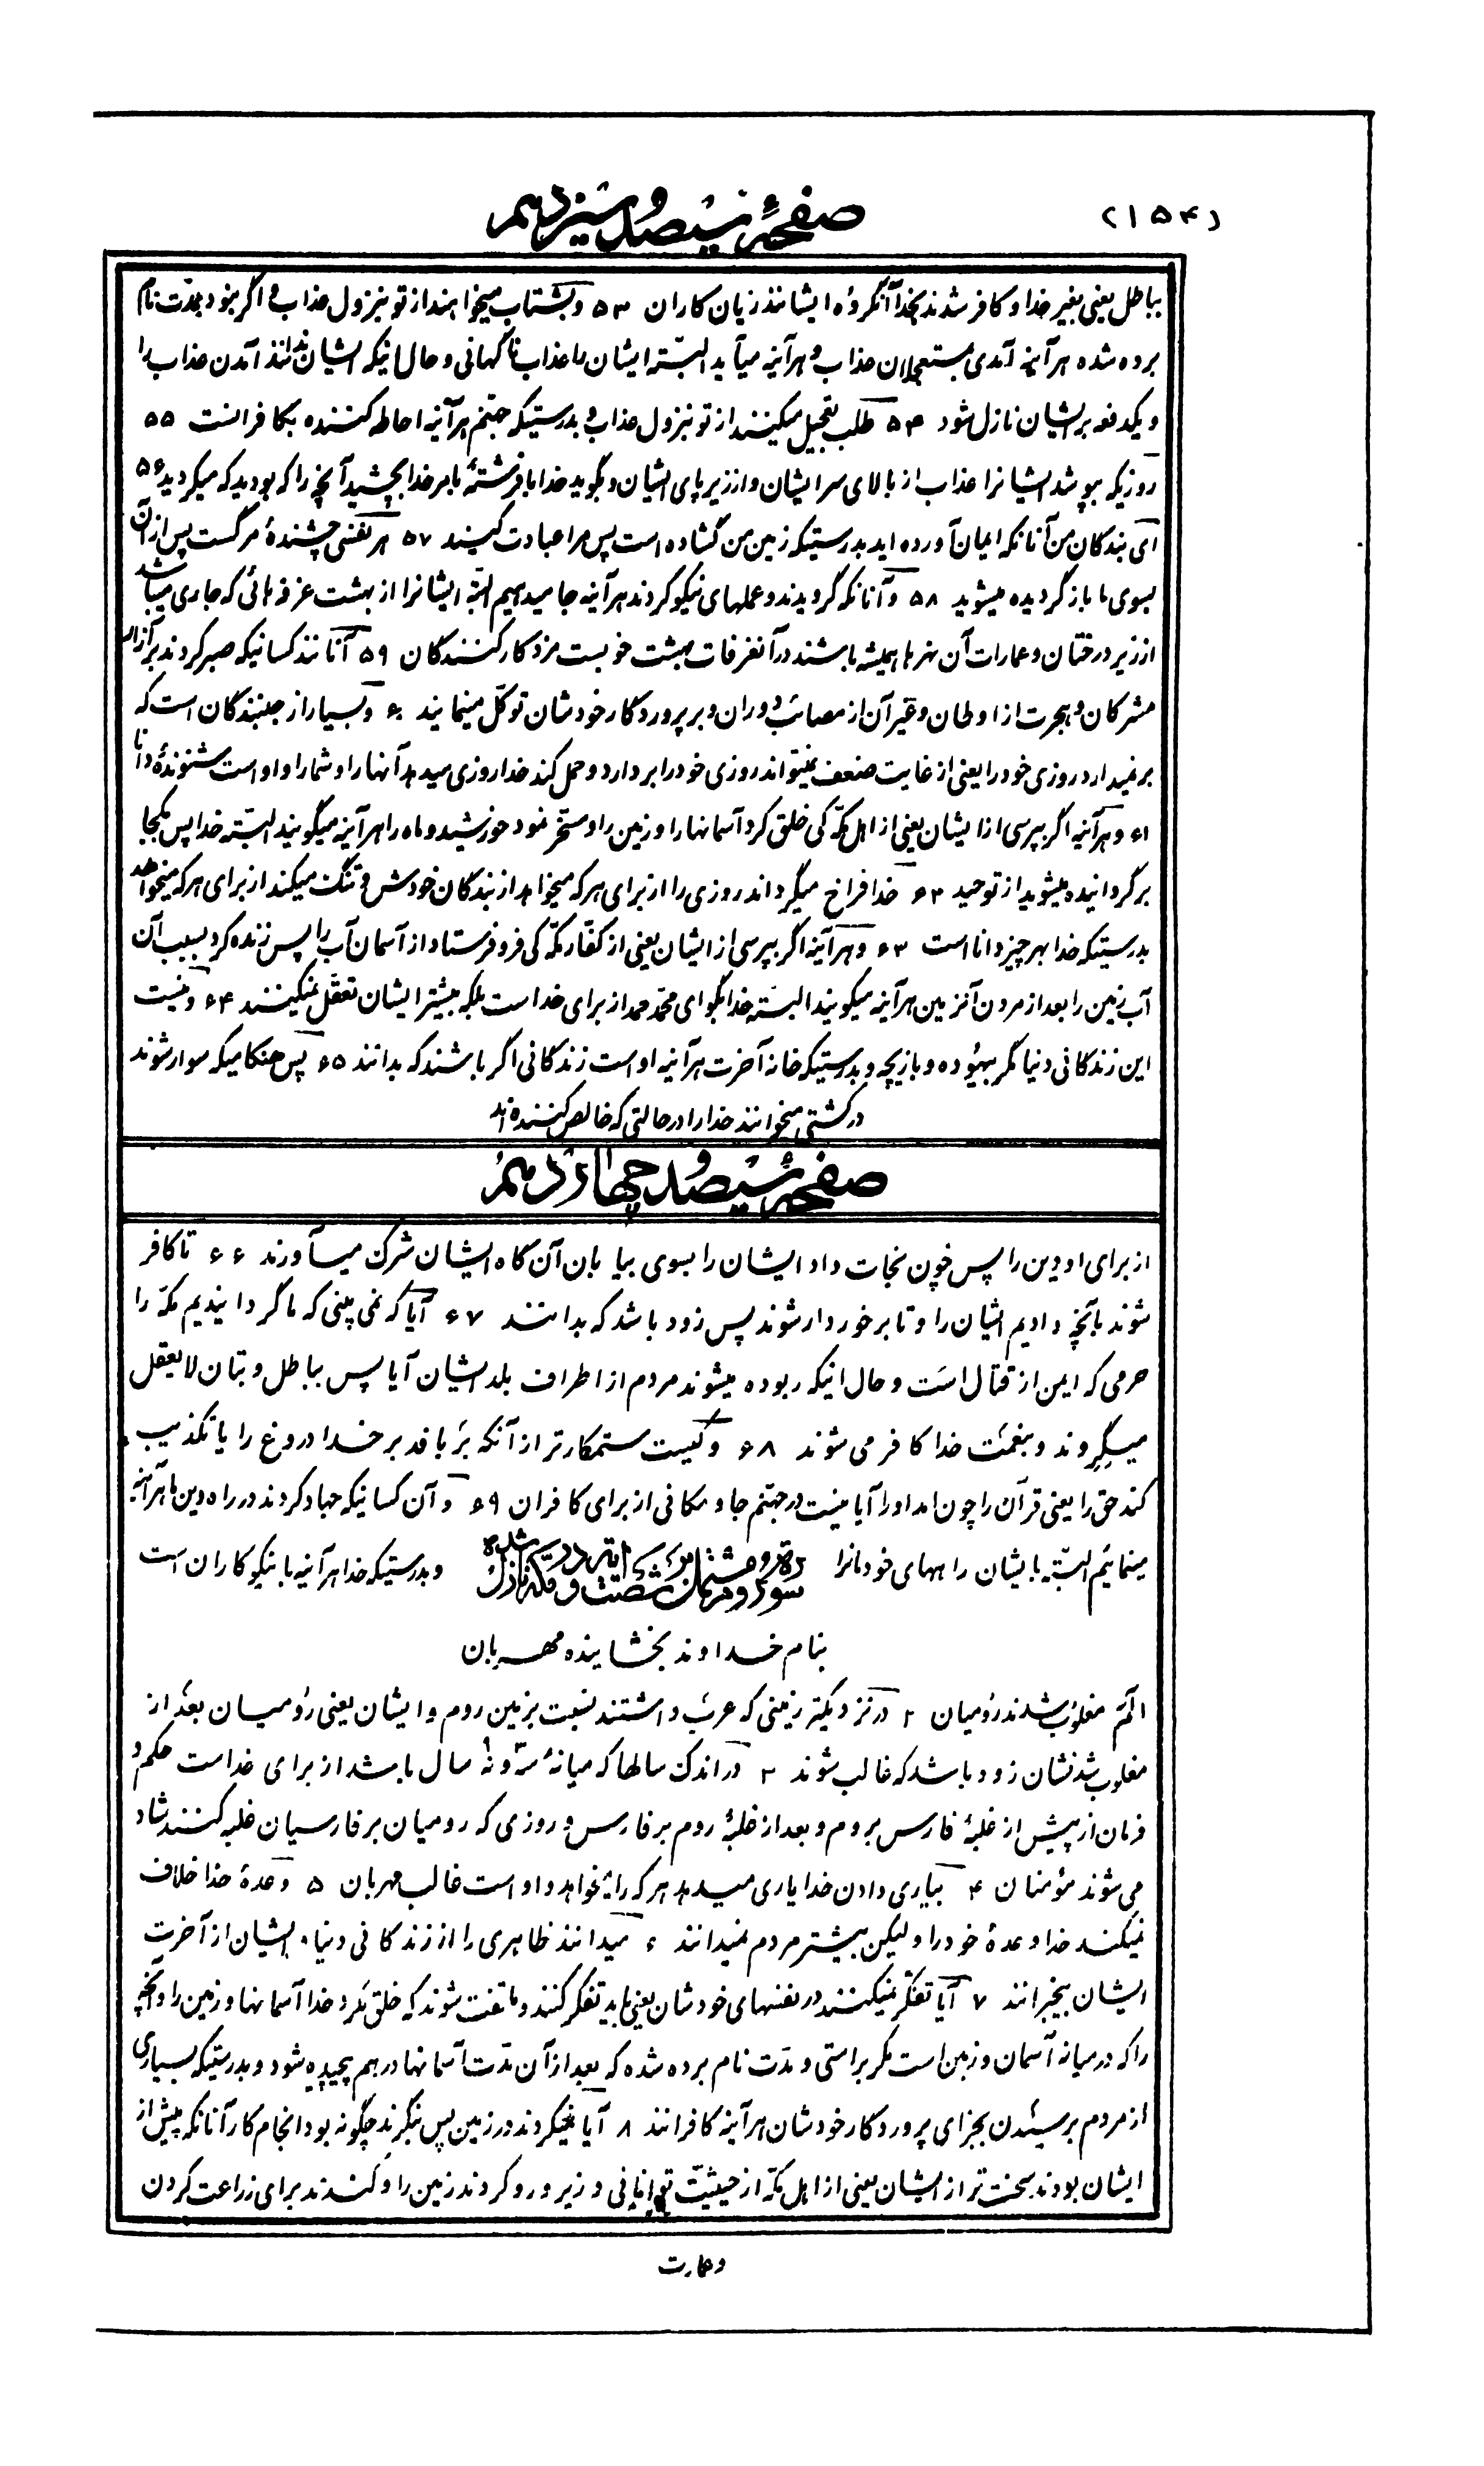 (۱۵۴)
صفحهٔ سیصد و سیزدهم
بباطل یعنی بغیر خدا و کافر شدند بخدا آنگروه ایشانند زیان کاران ۵۳ و بشتاب میخواهند از تو بنزول عذاب و اگر نبود مدت نام
برده شده هر آینه آمدی مستعجلان عذاب و هر آینه میآید البته ایشان را عذاب ناگهانی و حال اینکه ایشان ندانند آمدن عذاب را
و یکدفعه بر ایشان نازل شود ۵۴ طلب تعجیل میکنند از تو بنزول عذاب و بدرستیکه جهنم هر آینه احاطه کننده بکافرانست ۵۵
روزیکه بپوشد ایشانرا عذاب از بالای سر ایشان و از زیر پای ایشان و بگوید خدا یا فرشتهٔ بامر خدا بچشید آنچه را که بودید که میکردید ۵۶
ای بندکان من آنانکه ایمان آورده اید بدرستیکه زمین من گشاده است پس مرا عبادت کنید ۵۷ هر نفسی چشندهٔ مرگست پس از آن
بسوی ما بازگردیده میشوید ۵۸ و آنانکه گرویدند و عملهای نیکو کردند هر آینه جا میدهیم البته ایشانرا از بهشت غرفه هائی که جاری میباشد
از زیر درختان و عمارات آن نهرها همیشه باشند در آنغرفات بهشت خوبست مزد کار کنندگان ۵۹ آنانند کسانیکه صبر کردند بر آزار
مشرکان و هجرت از اوطان و غیر آن از مصائب دوران و بر پروردگار خودشان توکل مینمایند ۶۰ و بسیار از جنبندگان است که
بر نمیدارد روزی خود را یعنی از غایت ضعف نمیتواند روزی خود را بردارد و حمل کند خدا روزی میدهد آنها را و شما را و او است شنوندهٔ دانا
۶۱ و هر آینه اگر بپرسی از ایشان یعنی از اهل مکه کی خلق کرد آسمانها را و زمین را و مسخر نمود خورشید و ماه را هر آینه میگویند البته خدا پس بکجا
برگردانیده میشوید از توحید ۶۲ خدا فراخ میگرداند روزی را از برای هر که میخواهد از بندگان خودش و تنگ میکند از برای هر که میخواهد
بدرستیکه خدا بهر چیز دانا است ۶۳ و هر آینه اگر بپرسی از ایشان یعنی از کفار مکه کی فرو فرستاد از آسمان آب را پس زنده کرد بسبب آن
آب زمین را بعد از مردن آنزمین هر آینه میکویند البته خدا بگو ای محمد حمد از برای خداست بلکه بیشتر ایشان تعقل نمیکنند ۶۴ و نیست
این زندکانی دنیا مگر بیهوده و بازیچه و بدرستیکه خانه آخرت هر آینه او است زندکانی اگر باشند که بدانند ۶۵ پس هنکامیکه سوار شوند
در کشتی میخوانند خدا را در حالتی که خالص کننده اند
صفحهٔ سیصد و چهاردهم
از برای او دین را پس چون نجات داد ایشان را بسوی بیابان آن گاه ایشان شرک میآورند ۶۶ تا کافر
شوند بآنچه دادیم ایشان را و تا برخوردار شوند پس زود باشد که بدانند ۶۷ آیا که نمی بینی که ما گردانیدیم مکه را
حرمی که ایمن از قتال است و حال اینکه ربوده میشوند مردم از اطراف بلد ایشان آیا پس بباطل و بتان لا یعقل
میگروند و بنعمت خدا کافر می شوند ۶۸ و کیست ستمکارتر از آنکه بربافد بر خدا دروغ را یا تکذیب
کند حق را یعنی قرآن را چون آمد او را آیا نیست در جهنم جا و مکانی از برای کافران ۶۹ و آن کسانیکه جهاد کردند در راه دین ما هر آینه
مینمائیم البته بایشان راههای خودمانرا و بدرستیکه خدا هر آینه با نیکوکاران است
سورهٔ روم شصت آیه در مکه نازل شده
بنام خداوند بخشاینده مهربان
الم مغلوب شدند رومیان ۲ در نزدیکتر زمینی که عرب داشتند نسبت بزمین روم و ایشان یعنی رومیان بعد از
مغلوب شدنشان زود باشد که غالب شوند ۳ در اندک سالها که میانهٔ سه و نه سال باشد از برای خداست حکم و
فرمان از پیش از غلبهٔ فارس بروم و بعد از غلبهٔ روم بر فارس و روزی که رومیان بر فارسیان غلبه کنند شاد
می شوند مؤمنان ۴ بیاری دادن خدا یاری میدهد هر که را میخواهد و او است غالب مهربان ۵ وعدهٔ خدا خلاف
نمیکند خدا وعدهٔ خود را و لیکن بیشتر مردم نمیدانند ۶ میدانند ظاهری را از زندکانی دنیا و ایشان از آخرت
ایشان بیخبرانند ۷ آیا تفکر نمیکنند در نفسهای خودشان یعنی باید تفکر کنند و ملتفت شوند که خلق نکرد خدا آسمانها و زمین را و آنچه
را که در میانه آسمان و زمین است مگر براستی و مدت نام برده شده که بعد از آن مدت آسمانها در هم پیچیده شود و بدرستیکه بسیاری
از مردم برسیدن بجزای پروردکار خودشان هر آینه کافرانند ۸ آیا نمیگردند در زمین پس بنگرند چگونه بود انجام کار آنانکه پیش از
ایشان بودند سخت تر از ایشان یعنی از اهل مکه از حیثیت توانائی و زیر و رو کردند زمین را و کندند برای زراعت کردن
و عمارت